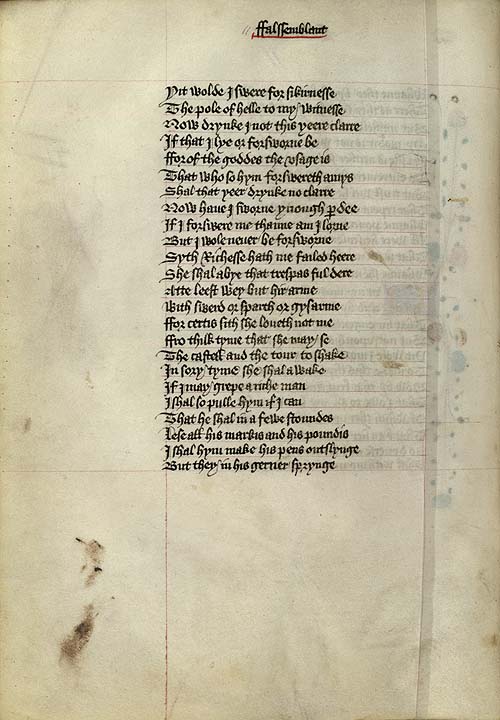 ffalssemblant
Yit wolde I swere for sikirnesse
The pole of helle to my witnesse
Now drynke I not this yeere clarre
If that I lye or forsworne be
ffor of the goddes the vsage is
That who so hym forswereth amys
Shal that yeer drynke no clarre
Now haue I sworne ynough pardee
If I forswere me thanne am I lorne
But I wole neuer be forsworne
Syth Richesse hath me failed heere
She shal abye that trespas ful dere
Atte leest wey but hir arme
With swerd or sparth or gysarme
ffor certis sith she loueth not me
ffro thilk tyme that she may se
The castell and the tour to shake
In sory tyme she shal a wake
If I may grepe a riche man
I shal so pulle hym if I can
That he shal in a fewe stoundes
Lese all his markis and his poundis
I shal hym make his pens outslynge
But they in his gerner sprynge